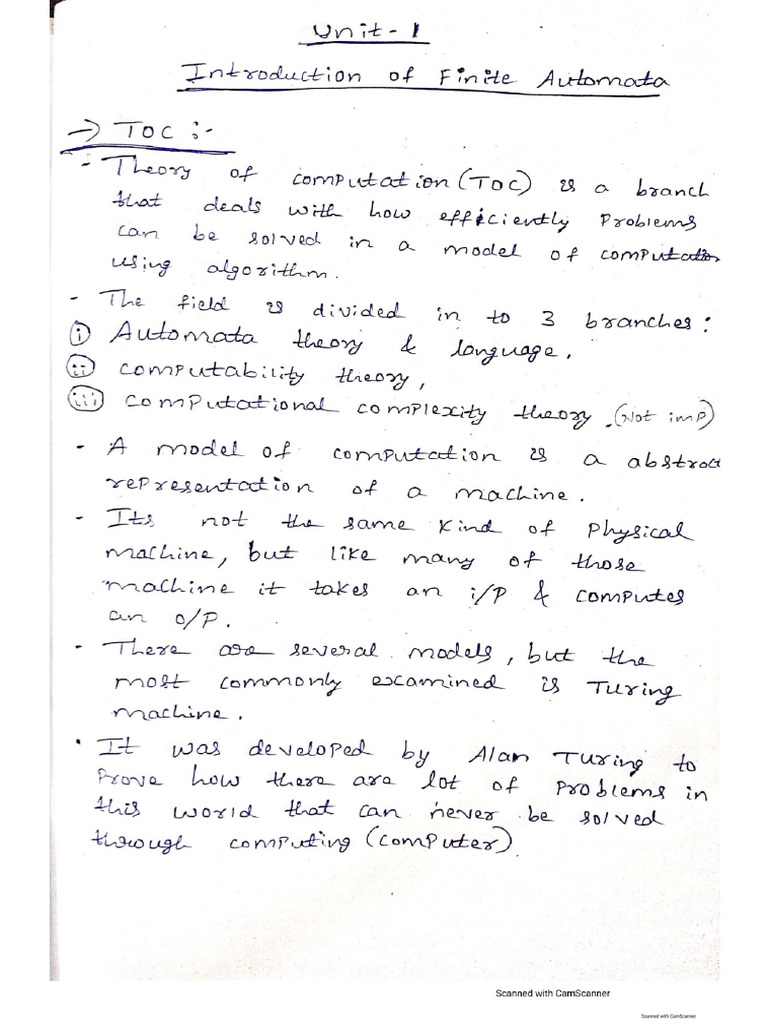 Unit-1
Introduction of Finite Automata
→ TOC :-
- Theory of computation (TOC) is a branch
that deals with how efficiently Problems
can be solved in a model of computation
using algorithm.
- The field is divided in to 3 branches:
(i) Automata theory & language.
(ii) computability theory,
(iii) computational complexity theory. (Not imp)
- A model of computation is a abstract
representation of a machine.
- Its not the same kind of Physical
machine, but like many of those
machine it takes an i/P & computes
an o/P.
- There are several models, but the
most commonly examined is Turing
machine.
· It was developed by Alan Turing to
Prove how there are lot of Problems in
this world that can never be solved
through computing (computer)
Scanned with CamScanner
Scanned with CamScanner